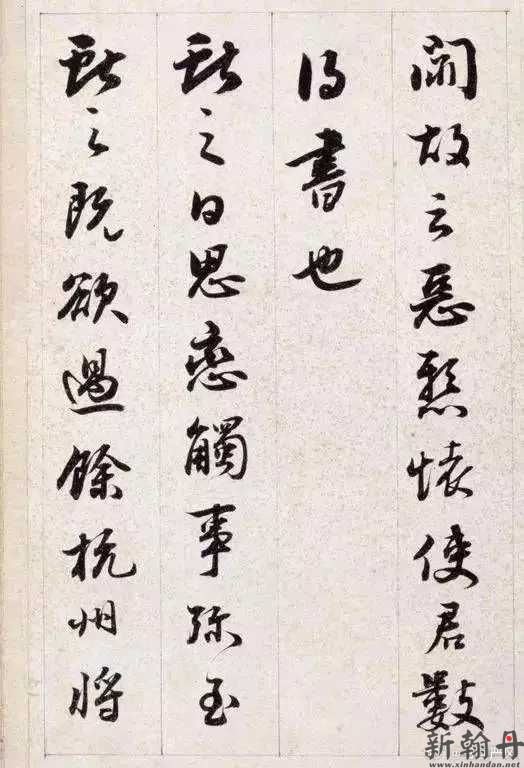 聞故云惡懸懷使君數
得書也
獻之日思戀觸事彌至
獻之既欲過餘杭州將
新翰丹
www.xinhandan.net